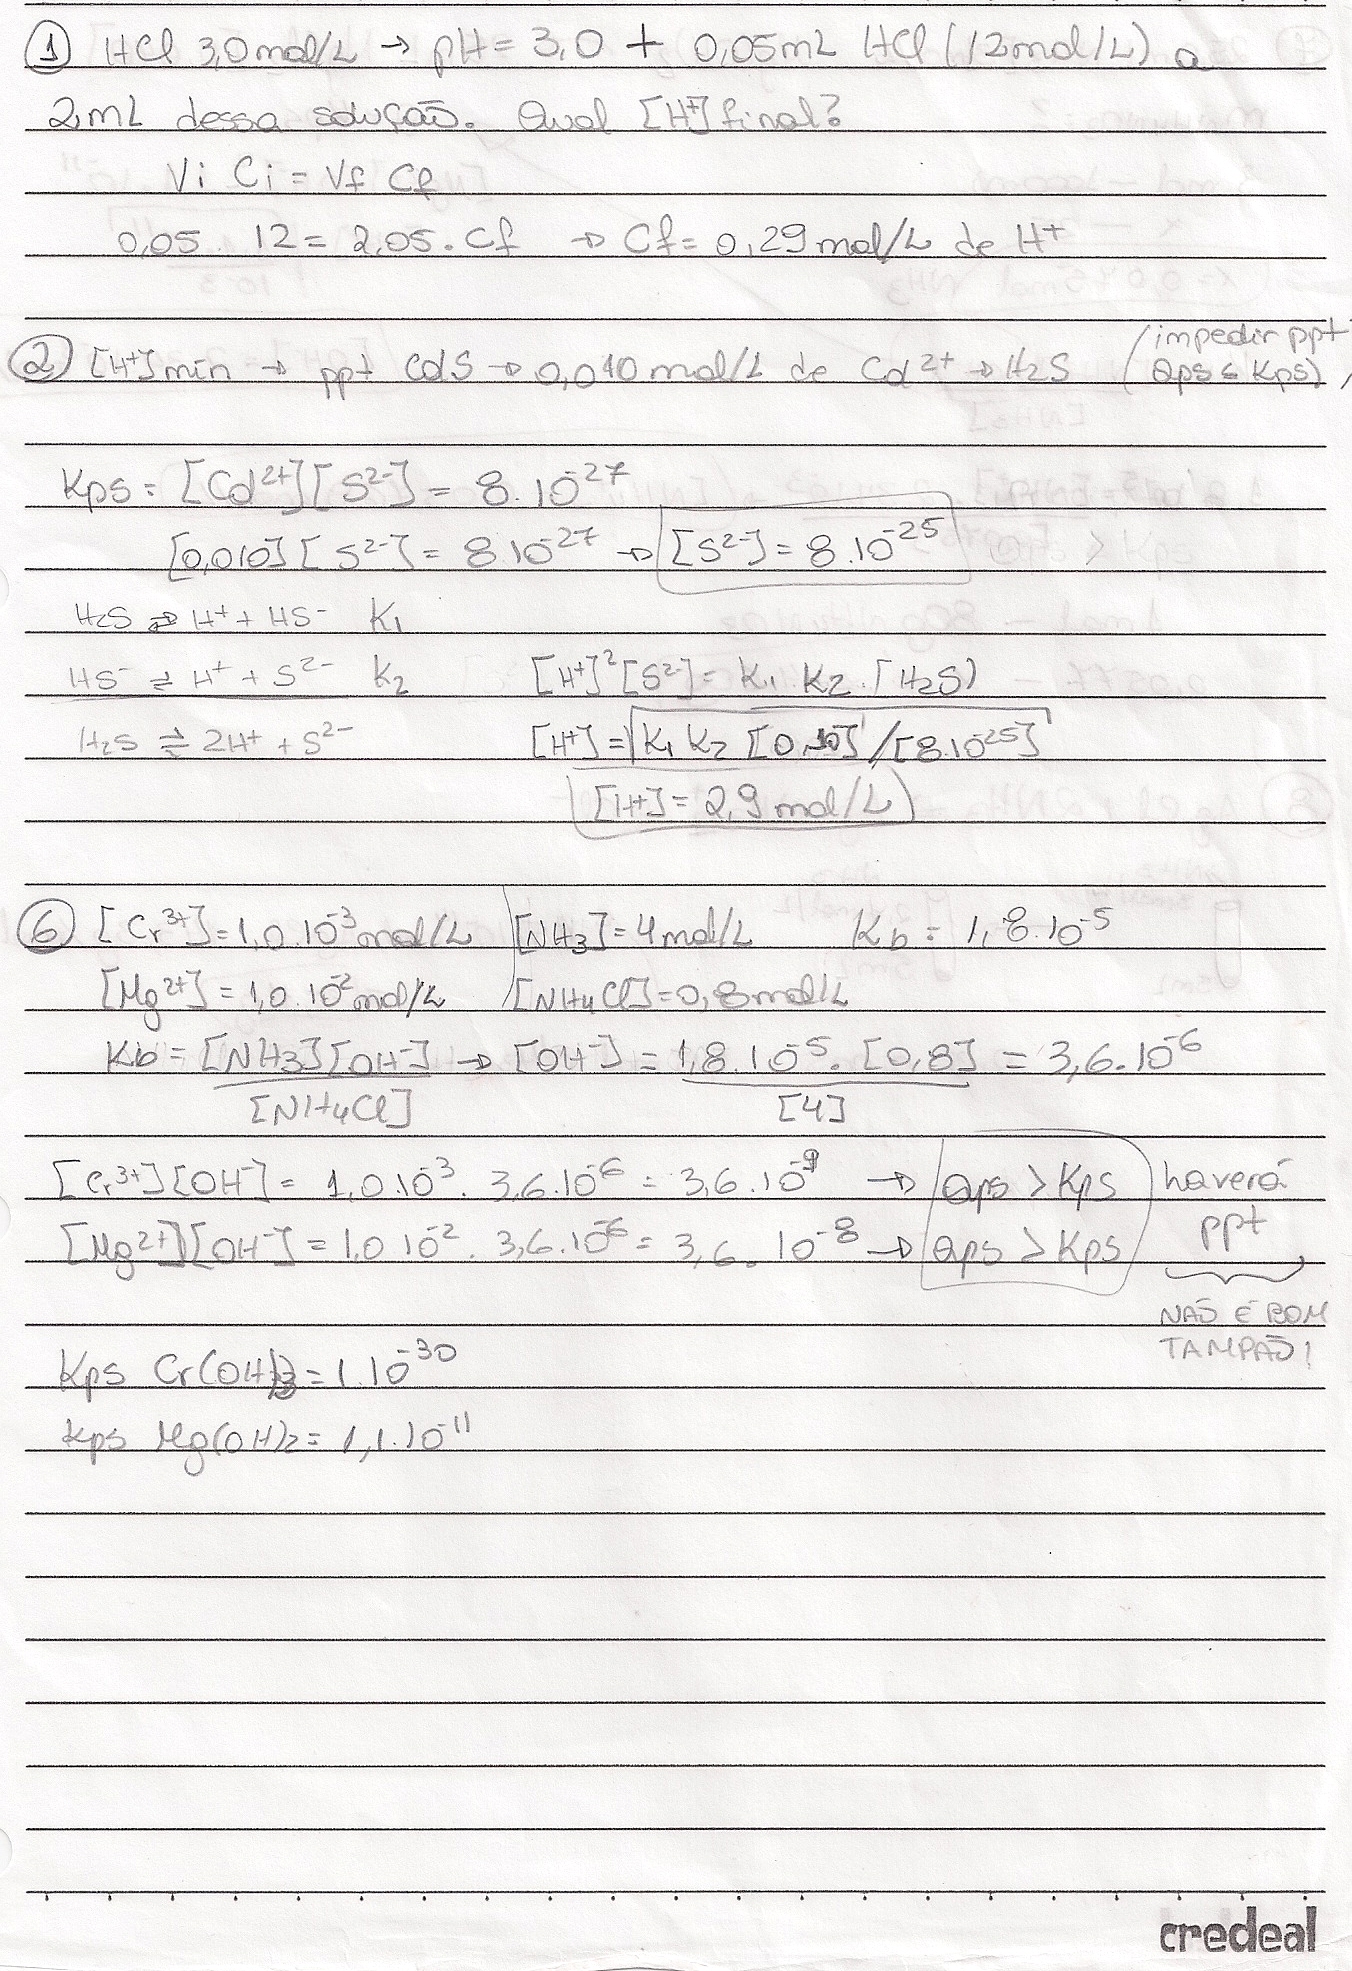 ① HCl 3,0 mol/L → pH = 3,0 + 0,05 mL HCl (12 mol/L) a
2 mL dessa solução. Qual [H⁺] final?
Vi Ci = Vf Cf
0,05 . 12 = 2,05 . Cf → Cf = 0,29 mol/L de H⁺
② [H⁺] min → ppt CdS → 0,010 mol/L de Cd²⁺ → H₂S
(impedir ppt
Qps < Kps)
Kps = [Cd²⁺][S²⁻] = 8.10⁻²⁷
[0,010][S²⁻] = 8.10⁻²⁷ → [S²⁻] = 8.10⁻²⁵
H₂S ⇌ H⁺ + HS⁻ K₁
HS⁻ ⇌ H⁺ + S²⁻ K₂ [H⁺]²[S²⁻] = K₁ . K₂ . [H₂S]
H₂S ⇌ 2H⁺ + S²⁻ [H⁺] = √K₁ K₂ [0,10] / [8.10⁻²⁵]
[H⁺] = 2,9 mol/L
⑥ [Cr³⁺] = 1,0.10⁻³ mol/L [NH₃] = 4 mol/L Kb = 1,8.10⁻⁵
[Mg²⁺] = 1,0.10⁻² mol/L [NH₄Cl] = 0,8 mol/L
Kb = [NH₃][OH⁻] → [OH⁻] = 1,8.10⁻⁵ . [0,8] = 3,6.10⁻⁶
[NH₄Cl] [4]
[Cr³⁺][OH⁻] = 1,0.10⁻³ . 3,6.10⁻⁶ = 3,6.10⁻⁹ → Qps > Kps haverá
[Mg²⁺][OH⁻] = 1,0.10⁻² . 3,6.10⁻⁶ = 3,6.10⁻⁸ → Qps > Kps ppt
NÃO É BOM
TAMPÃO!
Kps Cr(OH)₃ = 1.10⁻³⁰
Kps Mg(OH)₂ = 1,1.10⁻¹¹
credeal